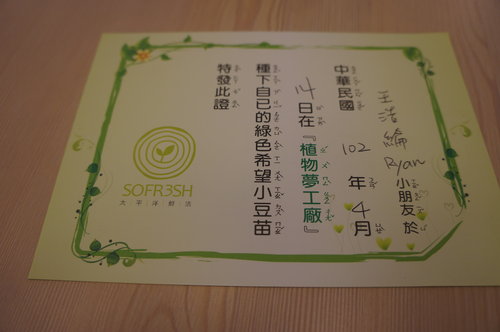 王浩綸
Ryan 小朋友於
中華民國 102 年 4 月
14 日在『植物夢工廠』
種下自己的綠色希望小豆苗
特發此證
SOFR3SH
太平洋鮮活